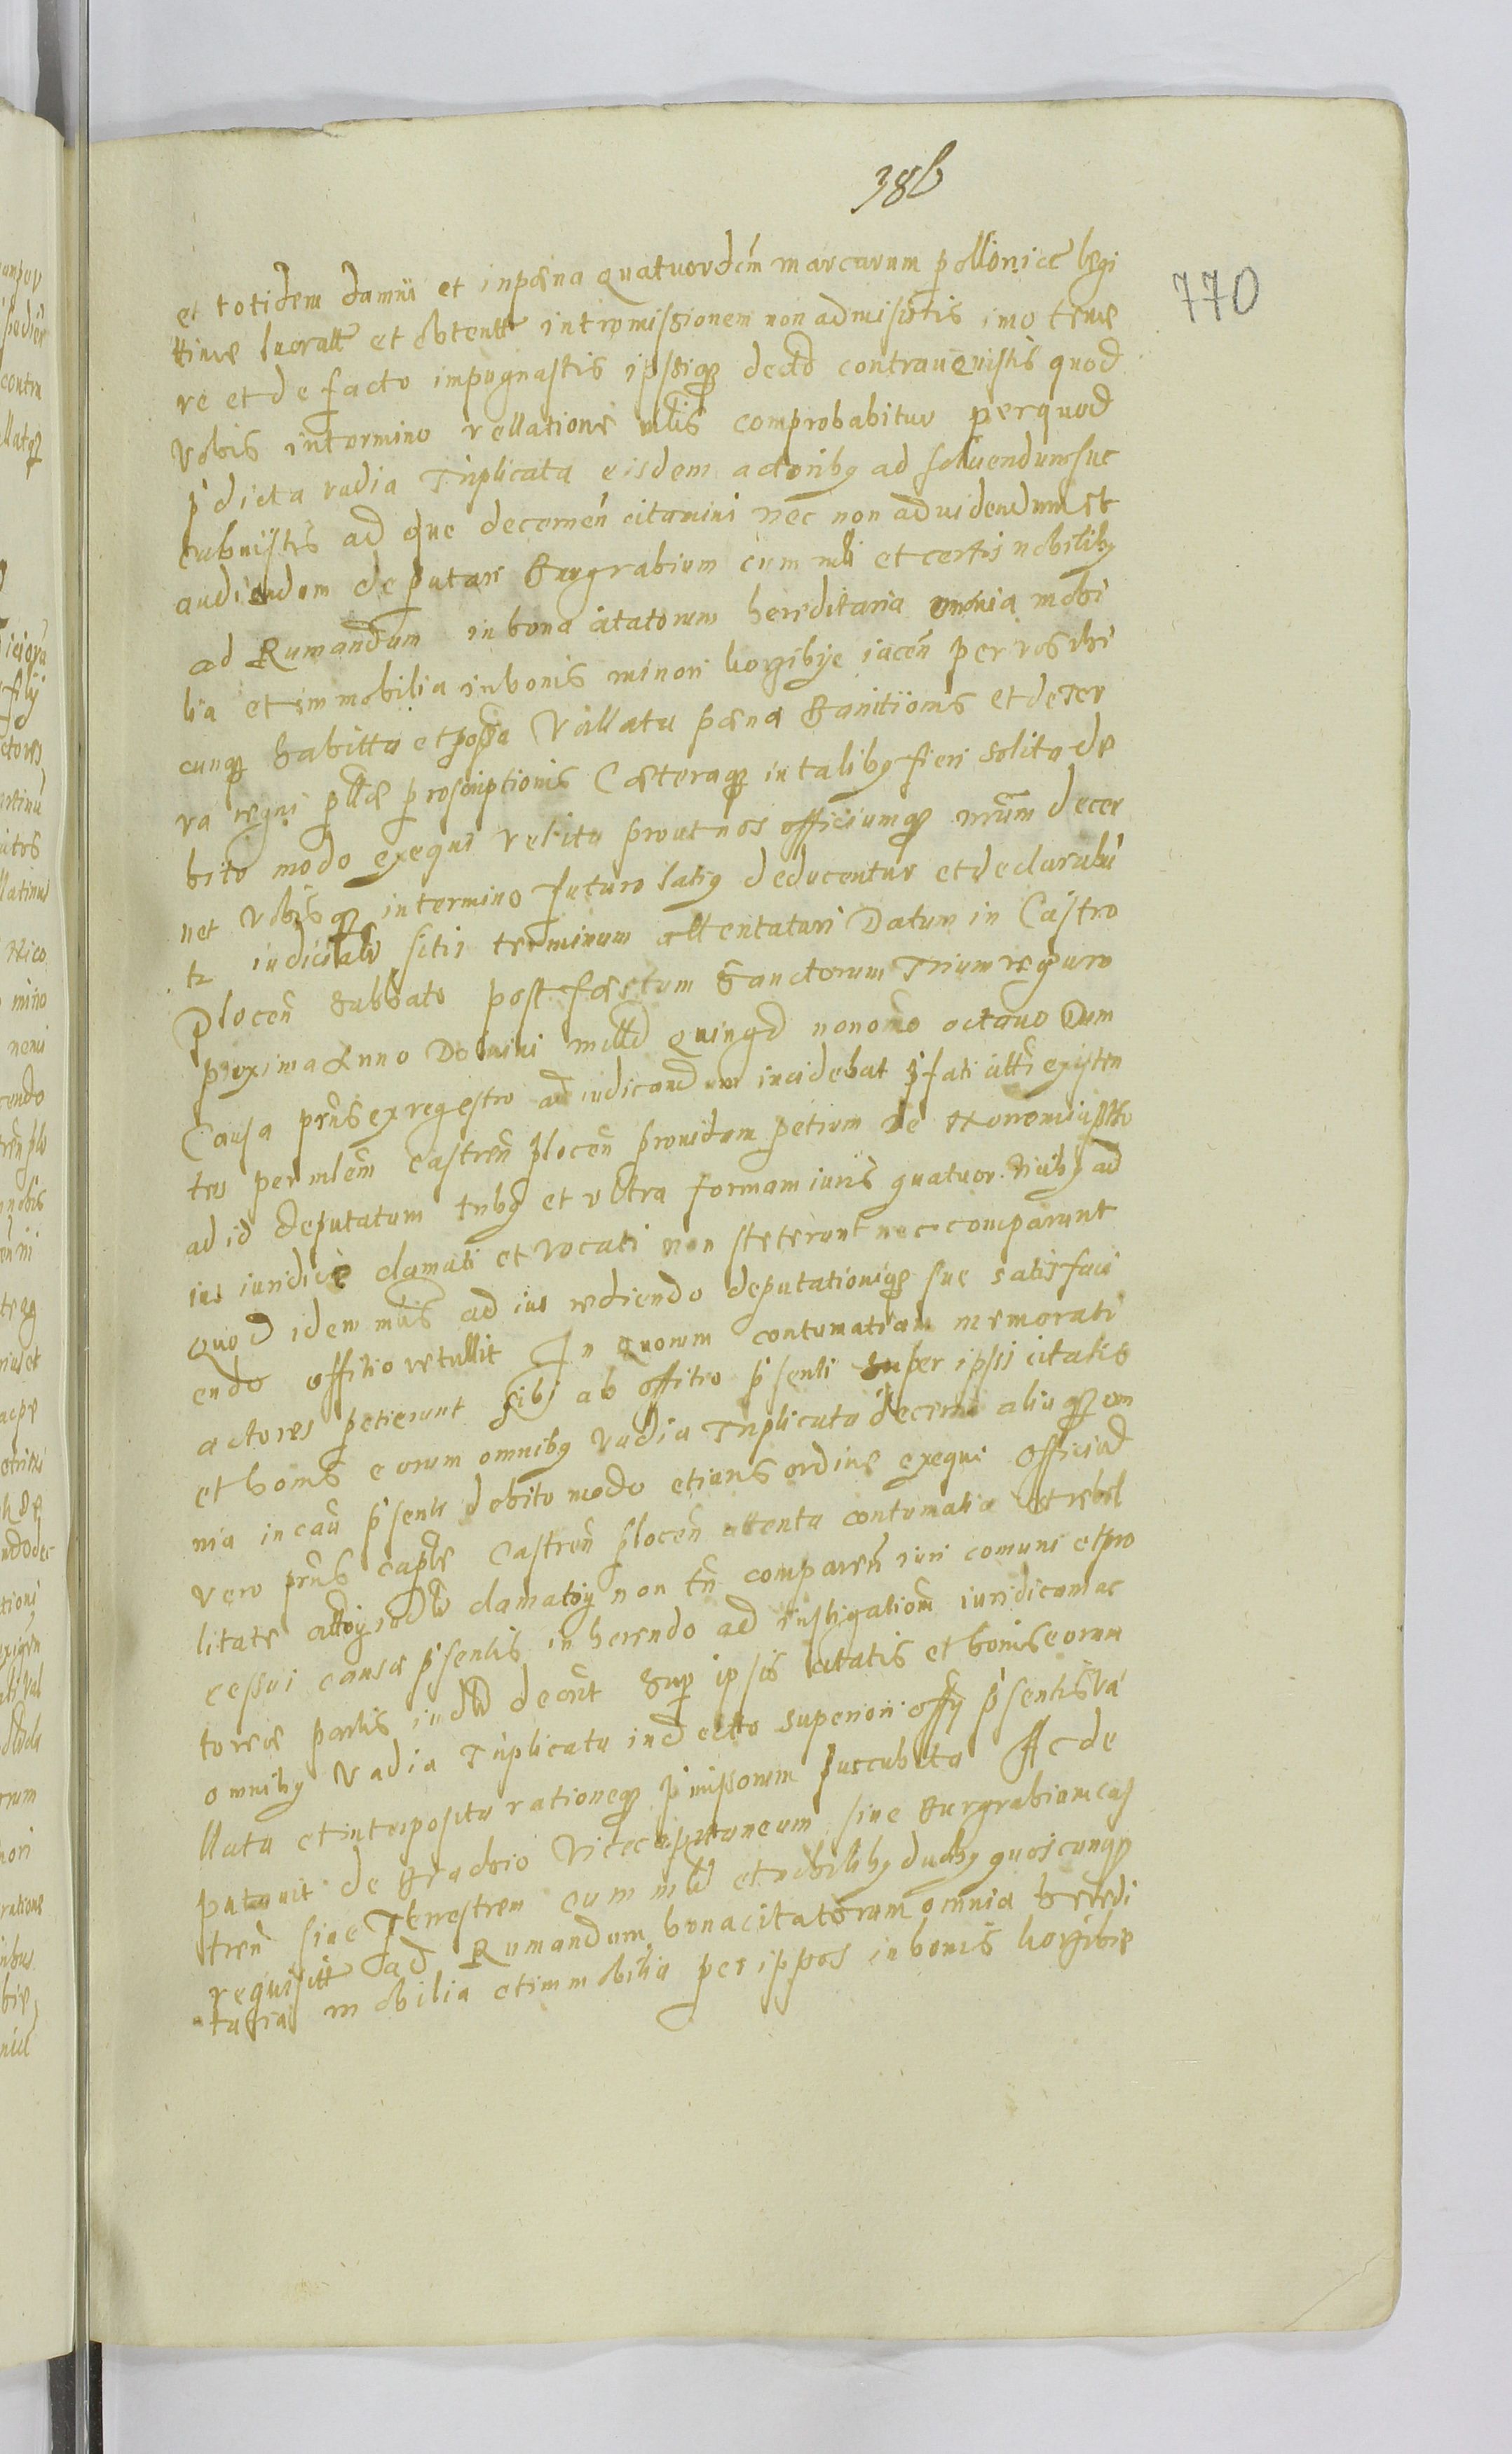 386
770
et totidem damni et in pœna quatuordecim marcarum pollonice legi
ttime lucratt et obtentt intromissionem non admisistis imo teme
re et de facto impugnastis ipssiq3 decto contrauenistis quod
vobis in termino rellatione mlis comprobabitur per quod
p̃dicta vadia Triplicata eisdem actorib9 ad soluendum suc
cubuistis ad que decernen̄ citamini nec non ad videndum et
audiendum deputari Burgrabium cum mli et certis nobilib9
ad Rumandum in bona citatorum hereditaria omnia mobi
lia et immobilia in bonis minori korzibije iacen̄ per vos vbi
cunq3 habitta et possa Vallatu pœna Banitionis et deter
ra regni pllæ proscriptionis Cæteraq3 in talib9 fieri solita de
bito modo exequi velitu prout nos officiumq3 nrum decer
net vobisq3 in termino futuro lati9 deducentur et declarabū
tr iudicialr sitis terminum attentaturi Datum in Castro
Plocen̄ Sabbato post fæstum Sanctorum Trium regum
proxima Anno Domini milld quingd nonomo octauo Dum
Causa prñs ex regestro ad iudicandum incidebat p̃fati citti existen
tes per mlem̄ castren̄ plocen̄ prouidum petrum de
ad id deputatum trib9 et vltra formam iuris quatuor vicib9 ad
ius iuridice clamati et vocati non steterunt nec comparunt
Quod idem mlis ad ius rediendo deputationiq3 sue satisfaci
endo offitio retullit In quorum contumatiam memorati
actores petierunt sibi ab offitio p̃senti super ipsis citatis
et bonis eorum omnib9 vadia Triplicata decerni aliaq3 om
nia in cau p̃senti debito modo et iuris ordine exequi Officiū
vero prñs caple Castren̄ plocen̄ attenta contumatia et rebel
litate cittor iudlr clamator non tn̄ comparen̄ iuri comuni et pro
cessui causæ p̃sentis in herendo ad instigationem̄ iuridicam ac
toreæ partis iudlr decrit Supr ipsis citatis et bonis eorum
omnib9 vadia Triplicata in decto superiori offij p̃sentis va
llata et interposita rationeq3 p̃missorum succubita Ac de
putauit de Gradoio Vicecapitaneum siue Burgrabium cas
tren̄ siue Terrestrem cum mli et nobilib9 duob9 quoscunq3
requisitt ad Rumandum bona citatorum omnia heredi
taria mobilia et immobilia per ipsos in bonis korzibie